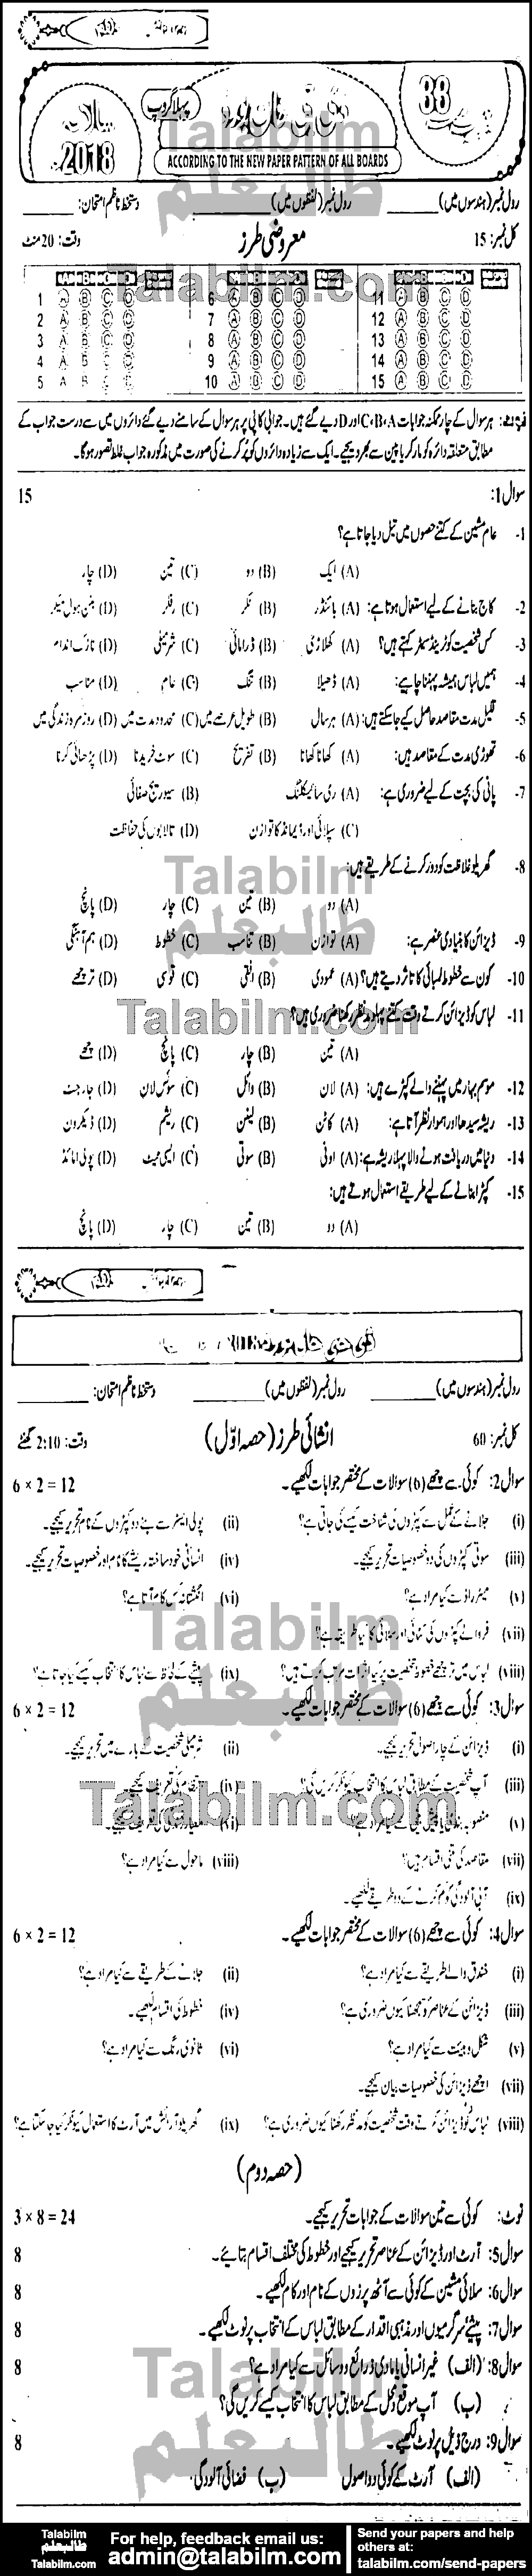 33
پہلا گروپ
سالانہ
2018
ACCORDING TO THE NEW PAPER PATTERN OF ALL BOARDS
رول نمبر (ہندسوں میں) ________ رول نمبر (لفظوں میں) ________ دستخط ناظم امتحان: ________
کل نمبر: 15 معروضی طرز وقت: 20 منٹ
1 A B C D 6 A B C D 11 A B C D
2 A B C D 7 A B C D 12 A B C D
3 A B C D 8 A B C D 13 A B C D
4 A B C D 9 A B C D 14 A B C D
5 A B C D 10 A B C D 15 A B C D
نوٹ: ہر سوال کے چار ممکنہ جوابات C،B،A اور D دیے گئے ہیں۔ جوابی کاپی پر ہر سوال کے سامنے دیے گئے دائروں میں سے درست جواب کے
مطابق متعلقہ دائرہ کو مارکر یا پین سے بھر دیجیے۔ ایک سے زیادہ دائروں کو پُر کرنے کی صورت میں مذکورہ جواب غلط تصور ہو گا۔
سوال 1: 15
1- عام مشین کے کتنے حصوں میں تیل دیا جاتا ہے؟
(A) ایک (B) دو (C) تین (D) چار
2- کاج بنانے کے لیے استعمال ہوتا ہے: (A) بائنڈر (B) ٹکر (C) رفلر (D) بٹن ہول میکر
3- کس شخصیت کو ٹرینڈ سیٹر کہتے ہیں؟ (A) کھلاڑی (B) ڈرامائی (C) شرمیلی (D) نازک اندام
4- ہمیں لباس ہمیشہ پہننا چاہیے: (A) ڈھیلا (B) تنگ (C) عام (D) مناسب
5- قلیل مدت مقاصد حاصل کیے جا سکتے ہیں: (A) ہر سال (B) طویل عرصے میں (C) محدود مدت میں (D) روزمرہ زندگی میں
6- تھوڑی مدت کے مقاصد ہیں: (A) کھانا کھانا (B) تفریح (C) سوٹ خریدنا (D) پڑھائی کرنا
7- پانی کی بچت کے لیے ضروری ہے: (A) ری سائیکلنگ (B) سیوریج صفائی
(C) سپلائی اور ڈیمانڈ کا توازن (D) تالابوں کی حفاظت
8- گھریلو غلاظت کو دور کرنے کے طریقے ہیں:
(A) دو (B) تین (C) چار (D) پانچ
9- ڈیزائن کا بنیادی عنصر ہے: (A) توازن (B) تناسب (C) خطوط (D) ہم آہنگی
10- کون سے خطوط لمبائی کا تاثر دیتے ہیں؟ (A) عمودی (B) افقی (C) قوسی (D) ترچھے
11- لباس کو ڈیزائن کرتے وقت کتنے پہلو مدنظر رکھنا ضروری ہیں؟
(A) تین (B) چار (C) پانچ (D) چھے
12- موسم بہار میں پہننے والے کپڑے ہیں: (A) لان (B) وائل (C) سوئس لان (D) جارجٹ
13- ریشہ سیدھا اور ہموار نظر آتا ہے: (A) کاٹن (B) لینن (C) ریشم (D) ڈیکرون
14- دنیا میں دریافت ہونے والا پہلا ریشہ ہے: (A) اونی (B) سوتی (C) ایسی ٹیٹ (D) پولی امائڈ
15- کپڑا بنانے کے لیے طریقے استعمال ہوتے ہیں:
(A) دو (B) تین (C) چار (D) پانچ
رول نمبر (ہندسوں میں) ________ رول نمبر (لفظوں میں) ________ دستخط ناظم امتحان: ________
کل نمبر: 60 انشائی طرز (حصہ اوّل) وقت: 2:10 گھنٹے
سوال 2: کوئی سے چھے (6) سوالات کے مختصر جوابات لکھیے۔ 6 × 2 = 12
(i) جلانے کے عمل سے کپڑوں کی شناخت کیسے کی جاتی ہے؟ (ii) پولی ایسٹر سے بنے دو کپڑوں کے نام تحریر کیجیے۔
(iii) سوتی کپڑوں کی دو خصوصیات تحریر کیجیے۔ (iv) انسانی خود ساختہ ریشے کا نام اور خصوصیات تحریر کیجیے۔
(v) میٹر راڈ سے کیا مراد ہے؟ (vi) انگشتانہ کس کام آتا ہے؟
(vii) فر والے کپڑوں کی کٹائی اور سلائی کا کیا طریقہ ہے؟
(viii) لباس میں ترچھے خطوط شخصیت پر کیا اثرات مرتب کرتے ہیں؟ (ix) پیشے کے لحاظ سے لباس کا انتخاب کیسے کیا جاتا ہے؟
سوال 3: کوئی سے چھے (6) سوالات کے مختصر جوابات لکھیے۔ 6 × 2 = 12
(i) ڈیزائن کے چار اصول تحریر کیجیے۔ (ii) شرمیلی شخصیت کے بارے میں تحریر کیجیے۔
(iii) آپ شخصیت کے مطابق لباس کا انتخاب کیونکر کریں گی؟ (iv) انتظام کی تعریف کیجیے۔
(v) منصوبہ بندی یا پیش بینی سے کیا مراد ہے؟ (vi)
(vii) مقاصد کی کتنی اقسام ہیں؟ (viii) ماحول سے کیا مراد ہے؟
(ix) آبی آلودگی کو کم کرنے کے دو طریقے لکھیے۔
سوال 4: کوئی سے چھے (6) سوالات کے مختصر جوابات لکھیے۔ 6 × 2 = 12
(i) خندق والے طریقے سے کیا مراد ہے؟ (ii) جلانے کے طریقے سے کیا مراد ہے؟
(iii) ڈیزائن کے عناصر کو سمجھنا کیوں ضروری ہے؟ (iv) خطوط کی اقسام لکھیے۔
(v) شکل و ہیئت سے کیا مراد ہے؟ (vi) ثانوی رنگ سے کیا مراد ہے؟
(vii) اچھے ڈیزائن کی خصوصیات بیان کیجیے۔
(viii) لباس کو ڈیزائن کرتے وقت شخصیت کو مدنظر رکھنا کیوں ضروری ہے؟ (ix) گھریلو آرائش میں آرٹ کا استعمال کیونکر کیا جا سکتا ہے؟
(حصہ دوم)
نوٹ: کوئی سے تین سوالات کے جوابات تحریر کیجیے۔ 3 × 8 = 24
سوال 5: آرٹ اور ڈیزائن کے عناصر تحریر کیجیے اور خطوط کی مختلف اقسام بتائیے۔ 8
سوال 6: سلائی مشین کے کوئی سے آٹھ پرزوں کے نام اور کام لکھیے۔ 8
سوال 7: پیشے، سرگرمیوں اور مذہبی اقدار کے مطابق لباس کے انتخاب پر نوٹ لکھیے۔ 8
سوال 8: (الف) غیر انسانی یا مادی ذرائع و وسائل سے کیا مراد ہے؟ 8
(ب) آپ موقع محل کے مطابق لباس کا انتخاب کیسے کریں گی؟
سوال 9: درج ذیل پر نوٹ لکھیے۔ 8
(الف) آرٹ کے کوئی دو اصول (ب) فضائی آلودگی
Talabilm
طالبعلم
Talabilm.com
For help, feedback email us:
admin@talabilm.com
Send your papers and help others at:
talabilm.com/send-papers